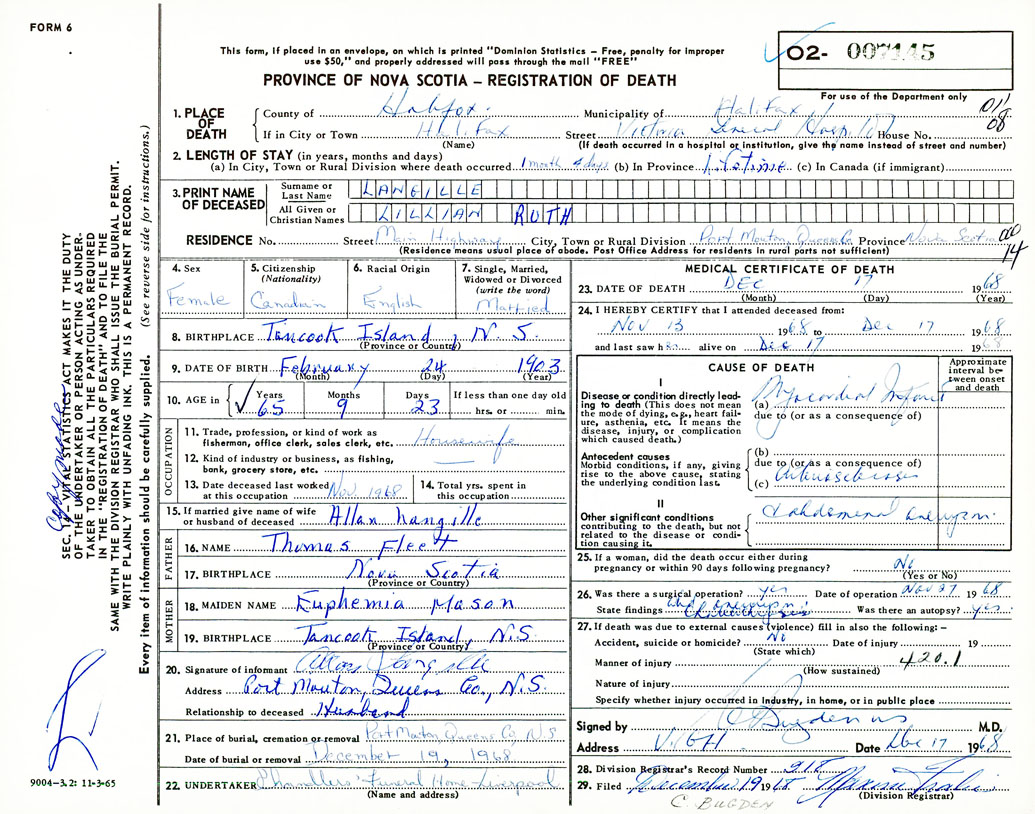 FORM 6
This form, if placed in an envelope, on which is printed "Dominion Statistics – Free, penalty for improper
use $50," and properly addressed will pass through the mail "FREE"
PROVINCE OF NOVA SCOTIA – REGISTRATION OF DEATH
02- 007145
For use of the Department only
011
08
1. PLACE OF DEATH
County of Halifax Municipality of Halifax
If in City or Town Halifax Street Victoria General Hospital House No.
(Name) (If death occurred in a hospital or institution, give the name instead of street and number)
2. LENGTH OF STAY (in years, months and days)
(a) In City, Town or Rural Division where death occurred 1 month 4 days (b) In Province Lifetime (c) In Canada (if immigrant)
3. PRINT NAME OF DECEASED
Surname or Last Name LANGILLE
All Given or Christian Names LILLIAN RUTH
RESIDENCE No. Street Main Highway City, Town or Rural Division Port Mouton, Queens Co Province Nova Scotia
000
14
(Residence means usual place of abode. Post Office Address for residents in rural parts not sufficient)
4. Sex Female
5. Citizenship (Nationality) Canadian
6. Racial Origin English
7. Single, Married, Widowed or Divorced (write the word) Married
8. BIRTHPLACE Tancook Island, N.S.
(Province or Country)
9. DATE OF BIRTH February 24 1903
(Month) (Day) (Year)
10. AGE in Years 65 Months 9 Days 23 If less than one day old hrs. or min.
OCCUPATION
11. Trade, profession, or kind of work as fisherman, office clerk, sales clerk, etc. Housewife
12. Kind of industry or business, as fishing, bank, grocery store, etc.
13. Date deceased last worked at this occupation Nov 1968
14. Total yrs. spent in this occupation
15. If married give name of wife or husband of deceased Allan Langille
FATHER
16. NAME Thomas Fleet
17. BIRTHPLACE Nova Scotia
(Province or Country)
MOTHER
18. MAIDEN NAME Euphemia Mason
19. BIRTHPLACE Tancook Island, N.S
(Province or Country)
20. Signature of informant Allan Langille
Address Port Mouton, Queens Co., N.S.
Relationship to deceased Husband
21. Place of burial, cremation or removal Port Mouton Queens Co N.S
Date of burial or removal December 19, 1968
22. UNDERTAKER Chandlers' Funeral Home Liverpool
(Name and address)
MEDICAL CERTIFICATE OF DEATH
23. DATE OF DEATH DEC 17 1968
(Month) (Day) (Year)
24. I HEREBY CERTIFY that I attended deceased from:
Nov 13 1968 to Dec 17 1968
and last saw her alive on Dec 17 1968
CAUSE OF DEATH
Approximate interval between onset and death
I
Disease or condition directly leading to death (This does not mean the mode of dying, e.g., heart failure, asthenia, etc. It means the disease, injury, or complication which caused death.)
(a) Myocardial Infarct
due to (or as a consequence of)
Antecedent causes
Morbid conditions, if any, giving rise to the above cause, stating the underlying condition last.
(b)
due to (or as a consequence of)
(c) Arteriosclerosis
II
Other significant conditions contributing to the death, but not related to the disease or condition causing it.
abdominal aneurysm.
25. If a woman, did the death occur either during pregnancy or within 90 days following pregnancy? No
(Yes or No)
26. Was there a surgical operation? yes Date of operation Nov 27 1968
State findings Abd aneurysm Was there an autopsy? yes
27. If death was due to external causes (violence) fill in also the following:–
Accident, suicide or homicide? No Date of injury 19
(State which)
Manner of injury 420.1
(How sustained)
Nature of injury
Specify whether injury occurred in Industry, in home, or in public place
Signed by C Bugden M.D.
Address V.G.H. Date Dec 17 1968
28. Division Registrar's Record Number 918
29. Filed December 19 1968
(Division Registrar)
C. BUGDEN
SEC. 14 – VITAL STATISTICS ACT MAKES IT THE DUTY
OF THE UNDERTAKER OR PERSON ACTING AS UNDER-
TAKER TO OBTAIN ALL THE PARTICULARS REQUIRED
IN THE "REGISTRATION OF DEATH" AND TO FILE THE
SAME WITH THE DIVISION REGISTRAR WHO SHALL ISSUE THE BURIAL PERMIT.
WRITE PLAINLY WITH UNFADING INK. THIS IS A PERMANENT RECORD.
Every item of information should be carefully supplied. (See reverse side for instructions.)
9004-3.2: 11-3-65